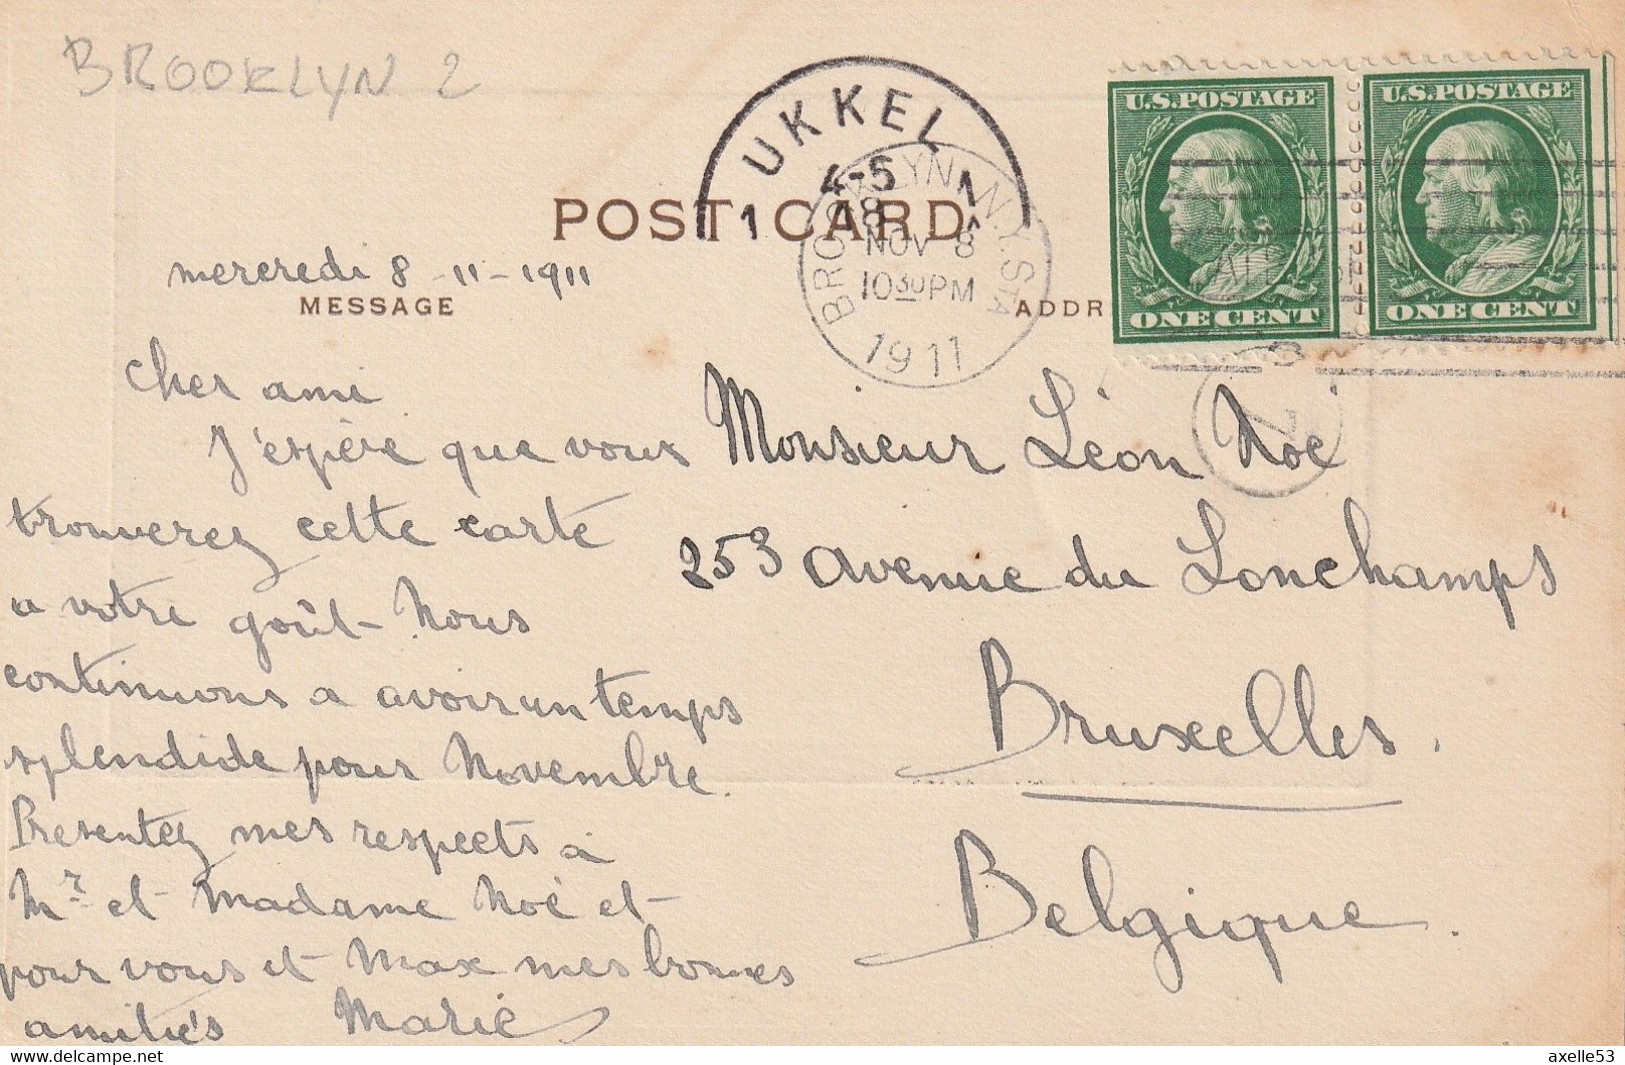 BROOKLYN 2
UKKEL
1 1
4-5
BROOKLYN, N.Y. STA
NOV 8
10 30 PM
1911
U.S. POSTAGE
ONE CENT
U.S. POSTAGE
ONE CENT
POST CARD
mercredi 8-11-1911
MESSAGE
ADDR
Cher ami
J'espère que vous
trouverez cette carte
a votre goût - Nous
continuons a avoir un temps
splendide pour Novembre.
Presentez mes respects à
Mr et Madame Noé et
pour vous et Max mes bonnes
amitiés Marie
Monsieur Léon Noé
253 Avenue du Lonchamps
Bruxelles.
Belgique.
axelle53